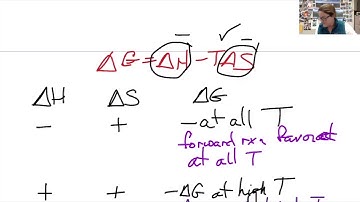 ΔG = ΔH - TΔS
ΔH ΔS ΔG
- + - at all T
forward rxn favored
at all T
+ + -ΔG at high T